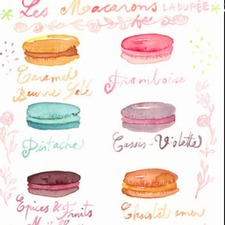 Les Macarons LADURÉE
Caramel
Beurre Salé
Framboise
Pistache
Cassis - Violette
Épices & Fruits
Chocolat amer